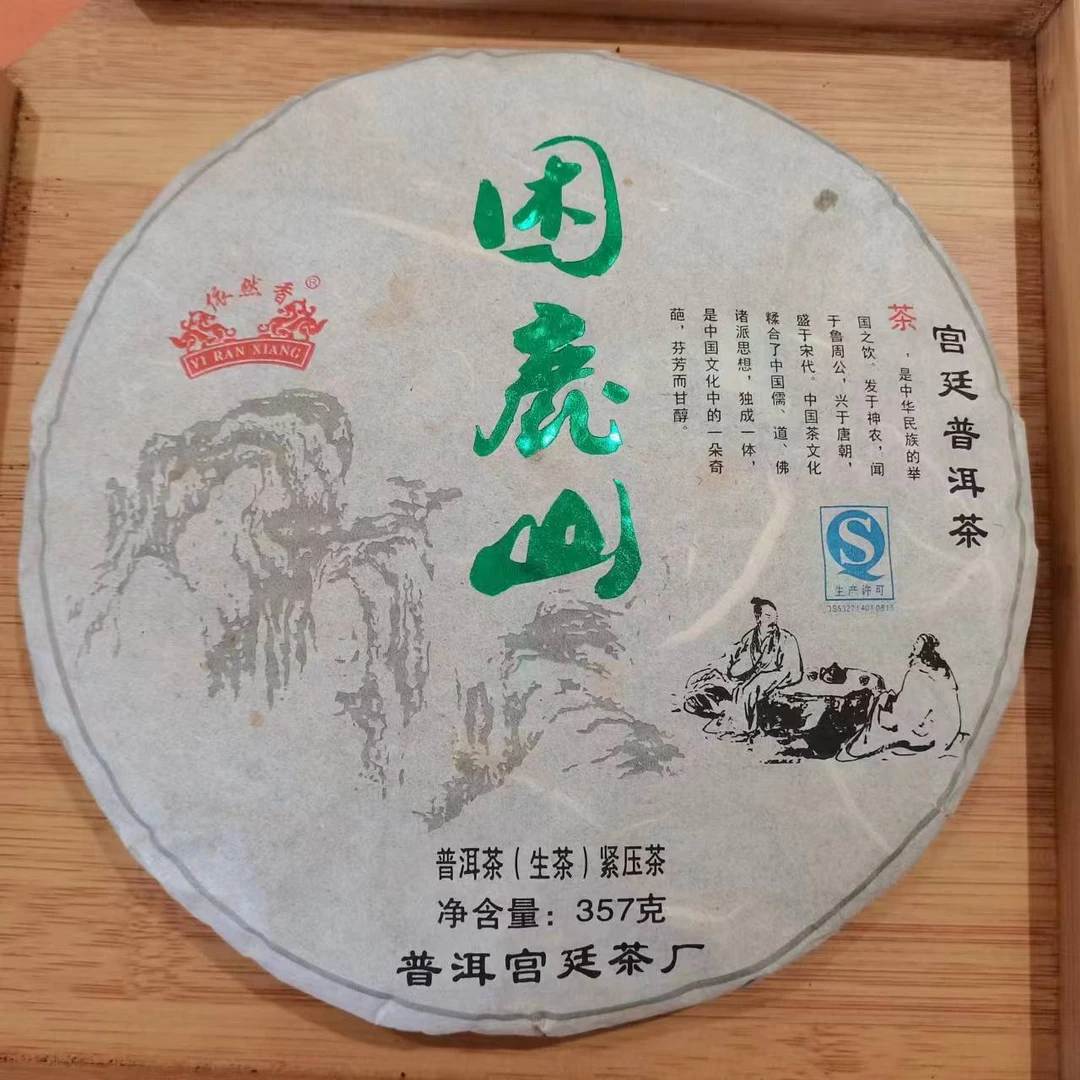 困鹿山
依然香®
YI RAN XIANG
宫廷普洱茶
茶，是中华民族的举
国之饮。发于神农，闻
于鲁周公，兴于唐朝，
盛于宋代。中国茶文化
糅合了中国儒、道、佛
诸派思想，独成一体，
是中国文化中的一朵奇
葩，芬芳而甘醇。
生产许可
普洱茶（生茶）紧压茶
净含量：357克
普洱宫廷茶厂